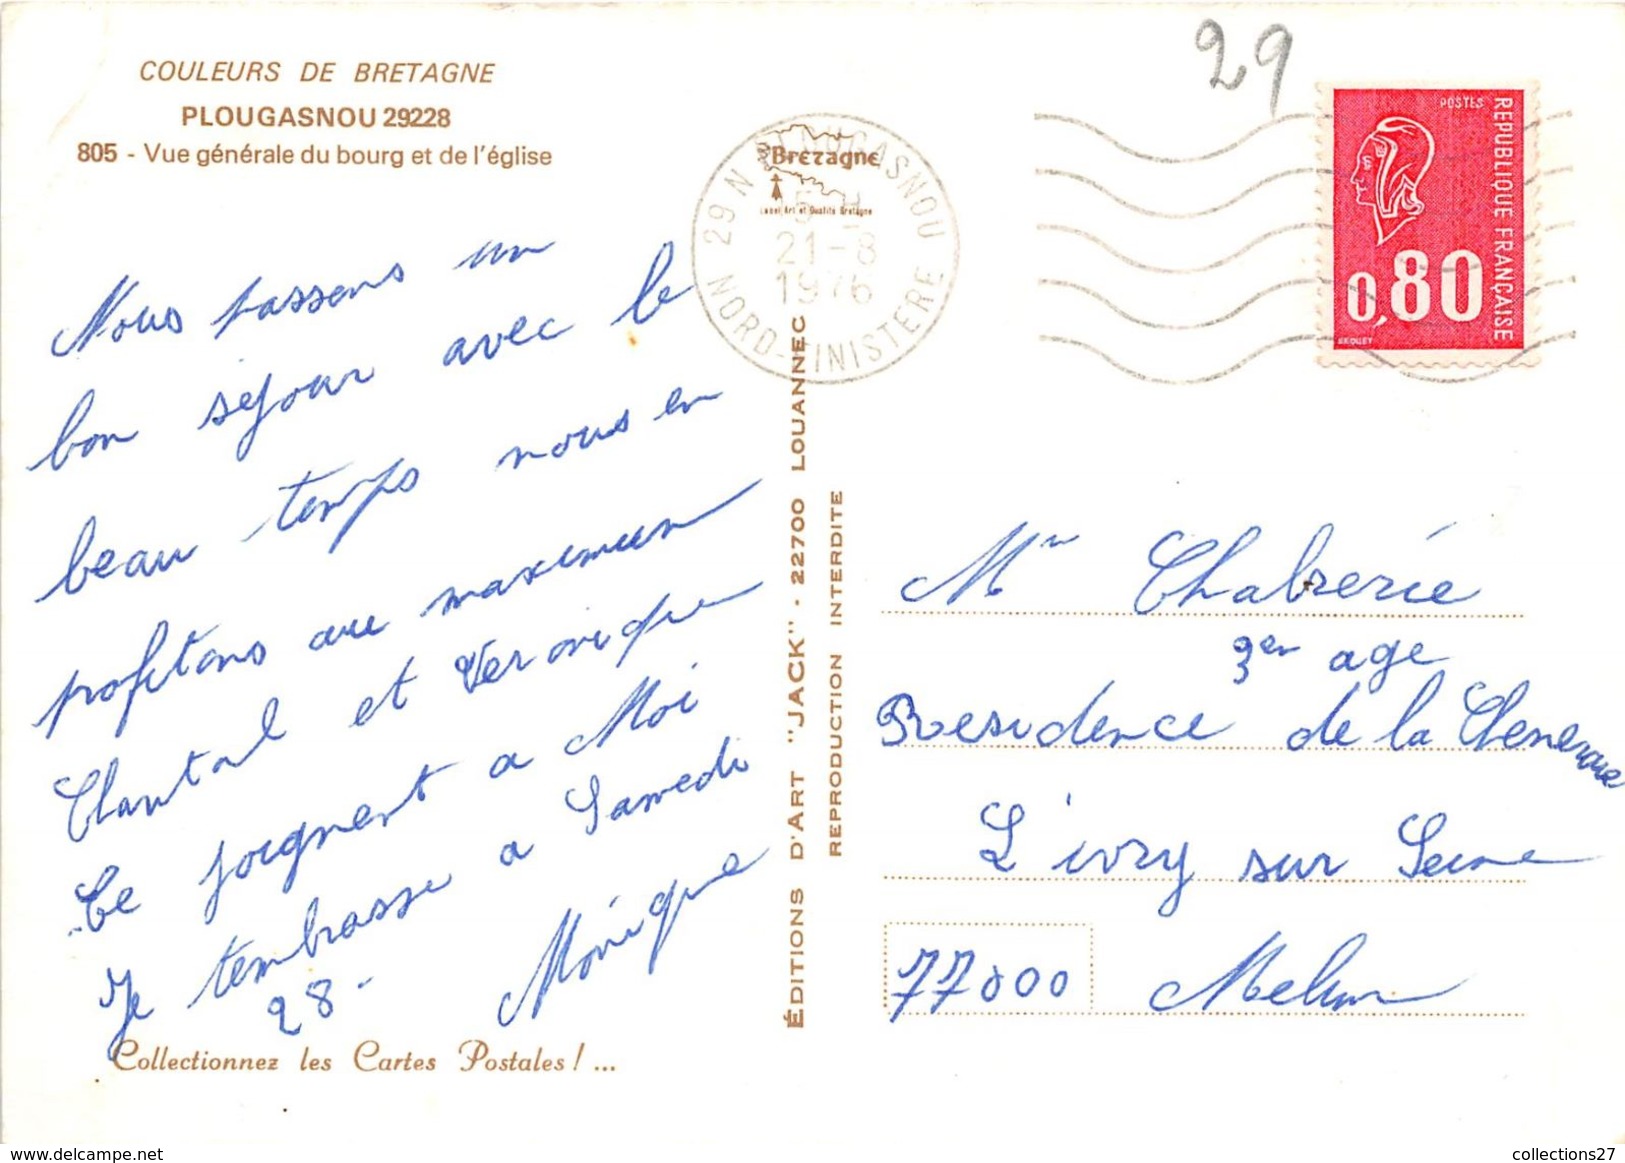 COULEURS DE BRETAGNE
PLOUGASNOU 29228
805 - Vue générale du bourg et de l'église
Nous passons un
bon séjour avec le
beau temps nous en
profitons au maximum
Chantal et Veronique
Ce joignent a Moi
Je tembrasse a Samedi
28 - Monique
Collectionnez les Cartes Postales ! ...
ÉDITIONS D'ART "JACK" - 22700 LOUANNEC
REPRODUCTION INTERDITE
Bretagne
Label Art et Qualité Bretagne
29 N PLOUGASNOU
21-8
1976
NORD-FINISTERE
29
POSTES
REPUBLIQUE FRANÇAISE
0,80
BEQUET
Mr Chabrerie
3em age
Residence de la
L'ivry sur Seine
77000 Melun
delcampe.net
collections27